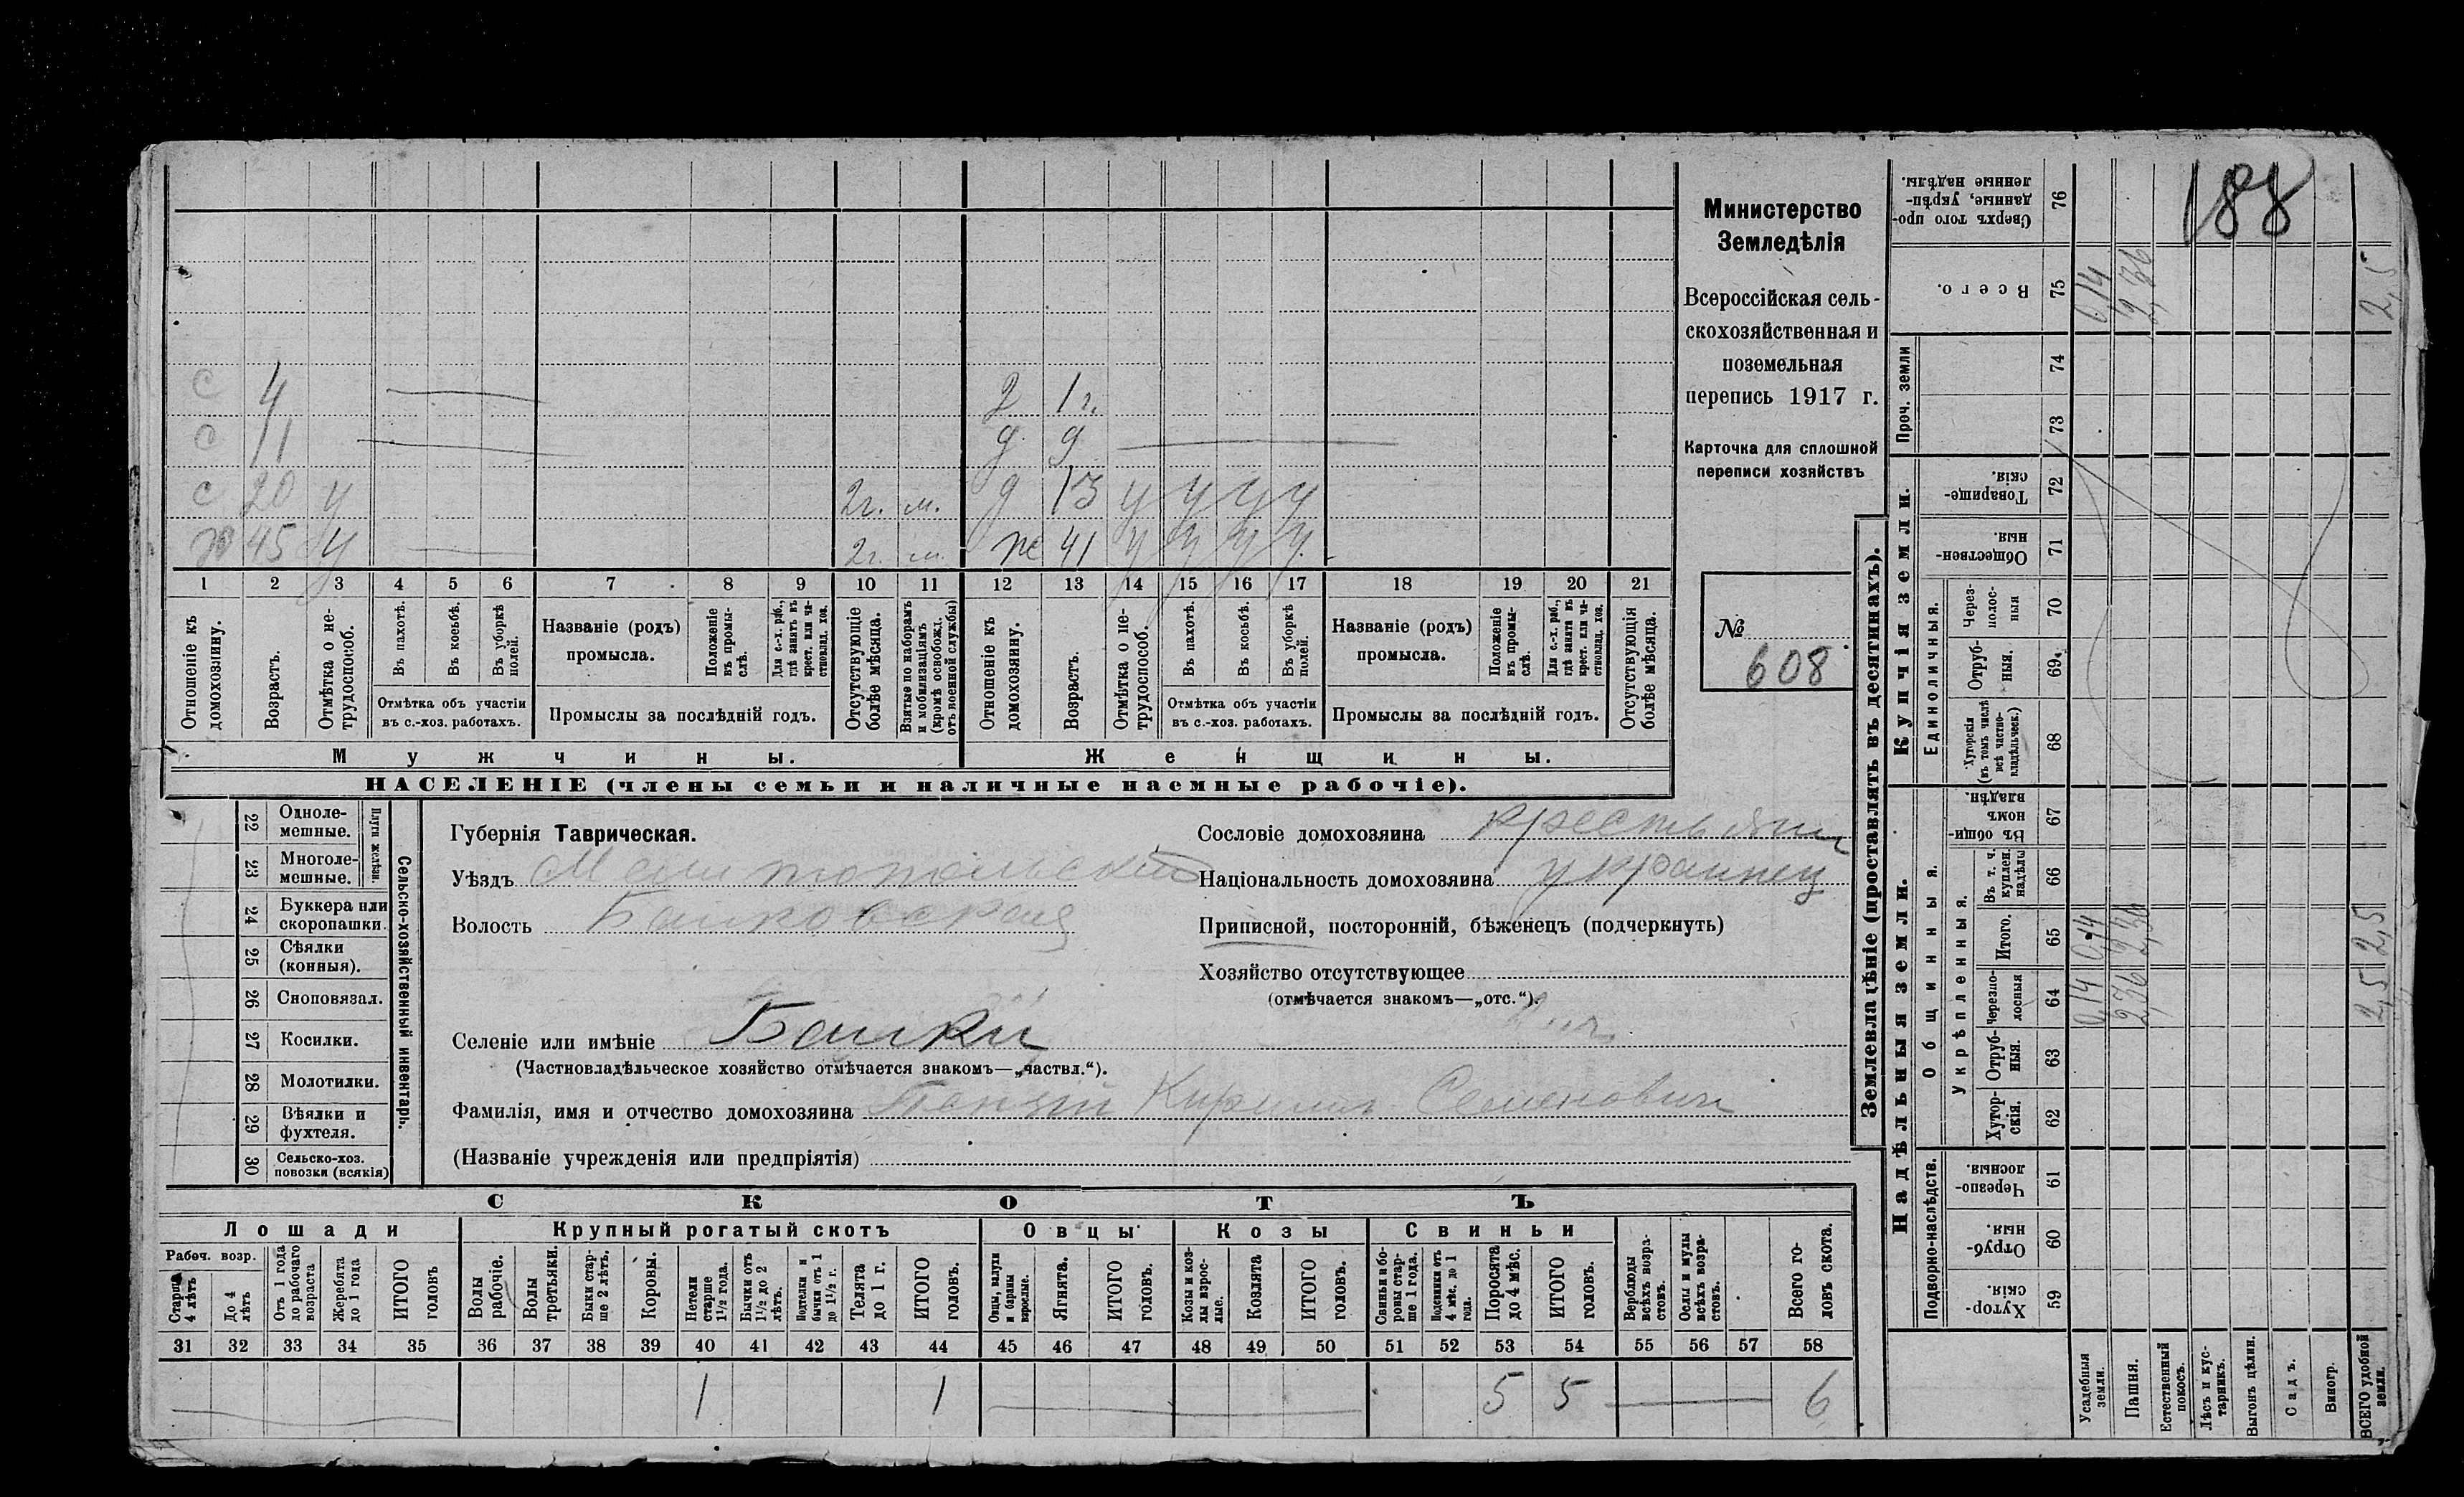 188
Министерство
Земледѣлія
Всероссійская сель-
скохозяйственная и
поземельная
перепись 1917 г.
Карточка для сплошной
переписи хозяйствъ
№
608
с 4 д 1 г.
с 11 д 9
с 20 у 2г. м. д 13 у у у у
х 45 у 2г. м. ж 41 у у у у
1 2 3 4 5 6 7 8 9 10 11 12 13 14 15 16 17 18 19 20 21
Отношеніе къ домохозяину.
Возрастъ.
Отмѣтка о не-трудоспособ.
Въ пахотѣ.
Въ косьбѣ.
Въ уборкѣ полей.
Отмѣтка объ участіи
въ с.-хоз. работахъ.
Названіе (родъ)
промысла.
Положеніе въ промы-слѣ.
Для с.-х. раб., гдѣ занятъ въ крест. или ча-стновлад. хоз.
Промыслы за послѣдній годъ.
Отсутствующіе болѣе мѣсяца.
Взятые по наборамъ и мобилизаціямъ (кромѣ освобожд. отъ военной службы)
Отношеніе къ домохозяину.
Возрастъ.
Отмѣтка о не-трудоспособ.
Въ пахотѣ.
Въ косьбѣ.
Въ уборкѣ полей.
Отмѣтка объ участіи
въ с.-хоз. работахъ.
Названіе (родъ)
промысла.
Положеніе въ промы-слѣ.
Для с.-х. раб., гдѣ занята въ крест. или ча-стновлад. хоз.
Промыслы за послѣдній годъ.
Отсутствующія болѣе мѣсяца.
Мужчины. Женщины.
НАСЕЛЕНІЕ (члены семьи и наличные наемные рабочіе).
Сельско-хозяйственный инвентарь.
Плуги желѣзн.
22 Одноле-мешные.
23 Многоле-мешные.
24 Буккера или скоропашки.
25 Сѣялки (конныя).
26 Сноповязал.
27 Косилки.
28 Молотилки.
29 Вѣялки и фухтеля.
30 Сельско-хоз. повозки (всякія)
Губернія Таврическая.
Уѣздъ Мелитопольский
Волость Балковская
Селеніе или имѣніе Балки
(Частновладѣльческое хозяйство отмѣчается знакомъ—„частвл.“).
Фамилія, имя и отчество домохозяина Кирилл Семенович
(Названіе учрежденія или предпріятія)
Сословіе домохозяина крестьянин
Національность домохозяина украинец
Приписной, посторонній, бѣженец (подчеркнуть)
Хозяйство отсутствующее
(отмѣчается знакомъ—„отс.“).
СКОТЪ
Лошади Крупный рогатый скотъ Овцы Козы Свиньи
Рабоч. возр.
Старше 4 лѣтъ
До 4 лѣтъ
Отъ 1 года до рабочаго возраста
Жеребята до 1 года
ИТОГО головъ
Волы рабочіе.
Волы третьяки.
Быки стар-ше 2 лѣтъ.
Коровы.
Нетели старше 1½ года.
Бычки отъ 1½ до 2 лѣтъ.
Подтелки и бычки отъ 1 до 1½ г.
Телята до 1 г.
ИТОГО головъ.
Овцы, валухи и бараны взрослые.
Ягнята.
ИТОГО головъ.
Козы и коз-лы взрос-лые.
Козлята
ИТОГО головъ.
Свиньи и бо-ровы стар-ше 1 года.
Подсвинки отъ 4 мѣс. до 1 года.
Поросята до 4 мѣс.
ИТОГО головъ.
Верблюды всѣхъ возра-стовъ.
Ослы и мулы всѣхъ возра-стовъ.
Всего го-ловъ скота.
31 32 33 34 35 36 37 38 39 40 41 42 43 44 45 46 47 48 49 50 51 52 53 54 55 56 57 58
1 1 5 5 6
Землевладѣніе (проставлять въ десятинахъ).
Надѣльныя земли. Купчія земли. Проч. земли
Подворно-наслѣдств.
Общинныя.
Укрѣпленныя.
Единоличныя.
Хутор-скія. 59
Отруб-ныя. 60
Черезпо-лосныя. 61
Хутор-скія. 62
Отруб-ныя. 63
Черезпо-лосныя 64
Итого. 65
Въ т. ч. куплен. надѣлы 66
Въ общи-номъ владѣн. 67
Хуторскія (въ томъ числѣ всѣ частно-владѣльческ.) 68
Отруб-ныя. 69
Через-полос-ныя 70
Обществен-ныя. 71
Товарище-скія. 72
73
74
Всего. 75
Сверхъ того про-данные, укрѣп-ленные надѣлы. 76
Усадебныя земли. 0,14 0,14 0,14
Пашня. 2,36 2,36 2,36
Естественный покосъ.
Лѣсъ и кус-тарникъ.
Выгонъ цѣлин.
Садъ.
Виногр.
ВСЕГО удобной земли. 2,5 2,5 2,5